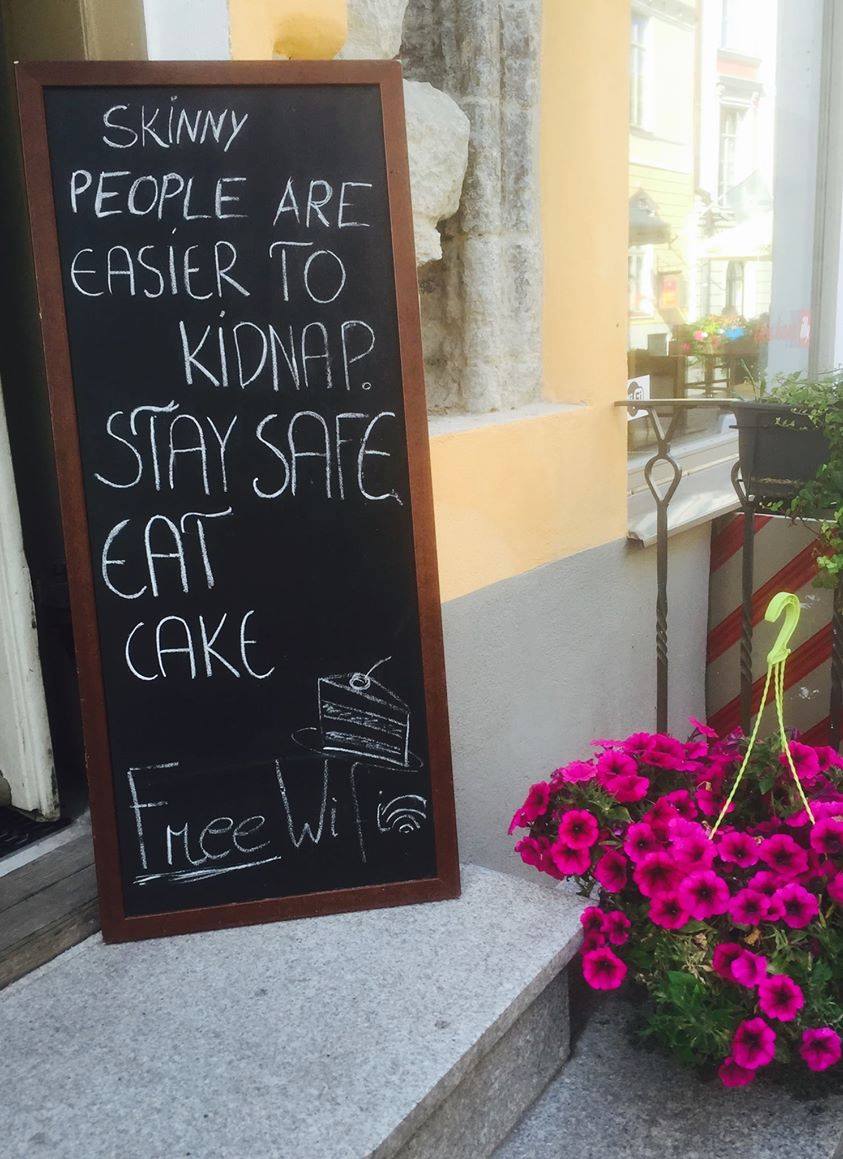 SKINNY
PEOPLE ARE
EASIER TO
KIDNAP.
STAY SAFE
EAT
CAKE
Free WiFi